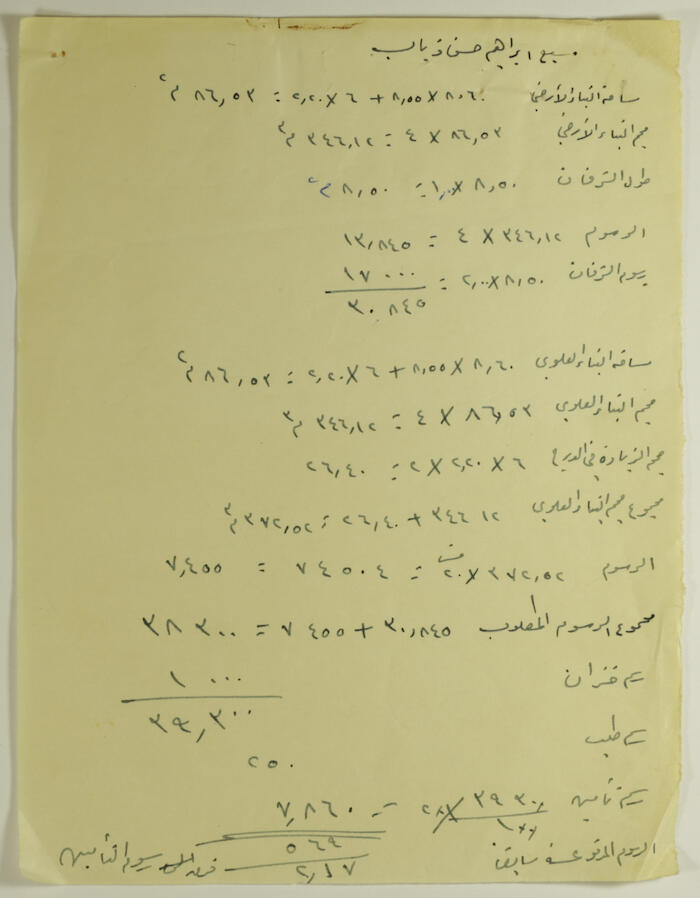 سبع ابراهيم حسن ذياب
مساحة البناء الأرضي ٨،٦٠ × ٨،٥٥ + ٦ × ٢،٢٠ = ٨٦،٥٣ م٢
حجم البناء الأرضي ٨٦،٥٣ × ٤ = ٣٤٦،١٢ م٣
طول الترفان ٨،٥٠ × ١،٠ = ٨،٥٠ م٢
الرسوم ٣٤٦،١٢ × ٤ = ١٣،٨٤٥
رسوم الترفان ٨،٥٠ × ٢،٠٠ = ١٧ ٠٠٠
٣٠،٨٤٥
مساحة البناء العلوي ٨،٦٠ × ٨،٥٥ + ٦ × ٢،٢٠ = ٨٦،٥٣ م٢
حجم البناء العلوي ٨٦،٥٣ × ٤ = ٣٤٦،١٢ م٣
حجم الزيادة في الدرج ٦ × ٢،٢٠ × ٢ = ٢٦،٤٠
مجموع حجم البناء العلوي ٣٤٦ ١٢ + ٢٦،٤٠ = ٣٧٢،٥٢ م٣
الرسوم ٣٧٢،٥٢ × ٢٠ = ٧٤٥٠٤ = ٧،٤٥٥
مجموع الرسوم المطلوب ٣٠،٨٤٥ + ٧٤٥٥ = ٣٨ ٣٠٠
رسم خزان ١ ٠٠٠
٣٩،٣٠٠
رسم طلب
٢٥٠
رسم تأمين ٣٩٣٠٠ × ٢٠ / ١٠٠ = ٧،٨٦٠
الرسوم المدفوعة سابقا ٥٦٩
٢،١٧ رسوم التأمين